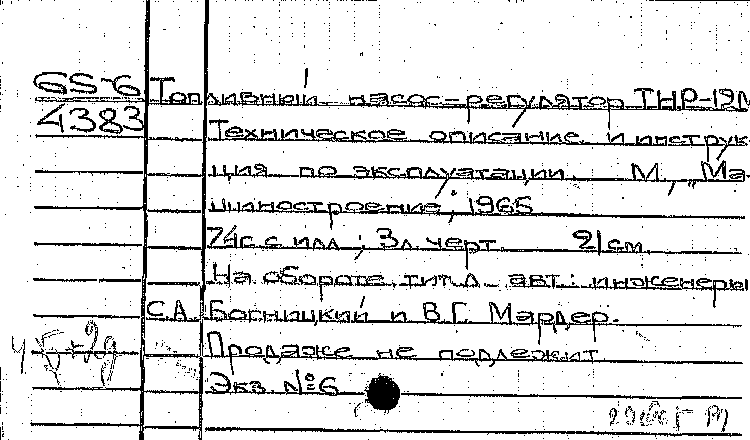 65-6 Топливный насос-регулятор ТНР-19М
4383 Техническое описание и инструк-
ция по эксплуатации. М., „Ма-
шиностроение", 1965
74с с илл; 3л. черт. 21см.
На обороте тит.л. авт.: инженеры
С.А. Богницкий и В.Г. Мардер.
Продаже не подлежит
Экз. №6